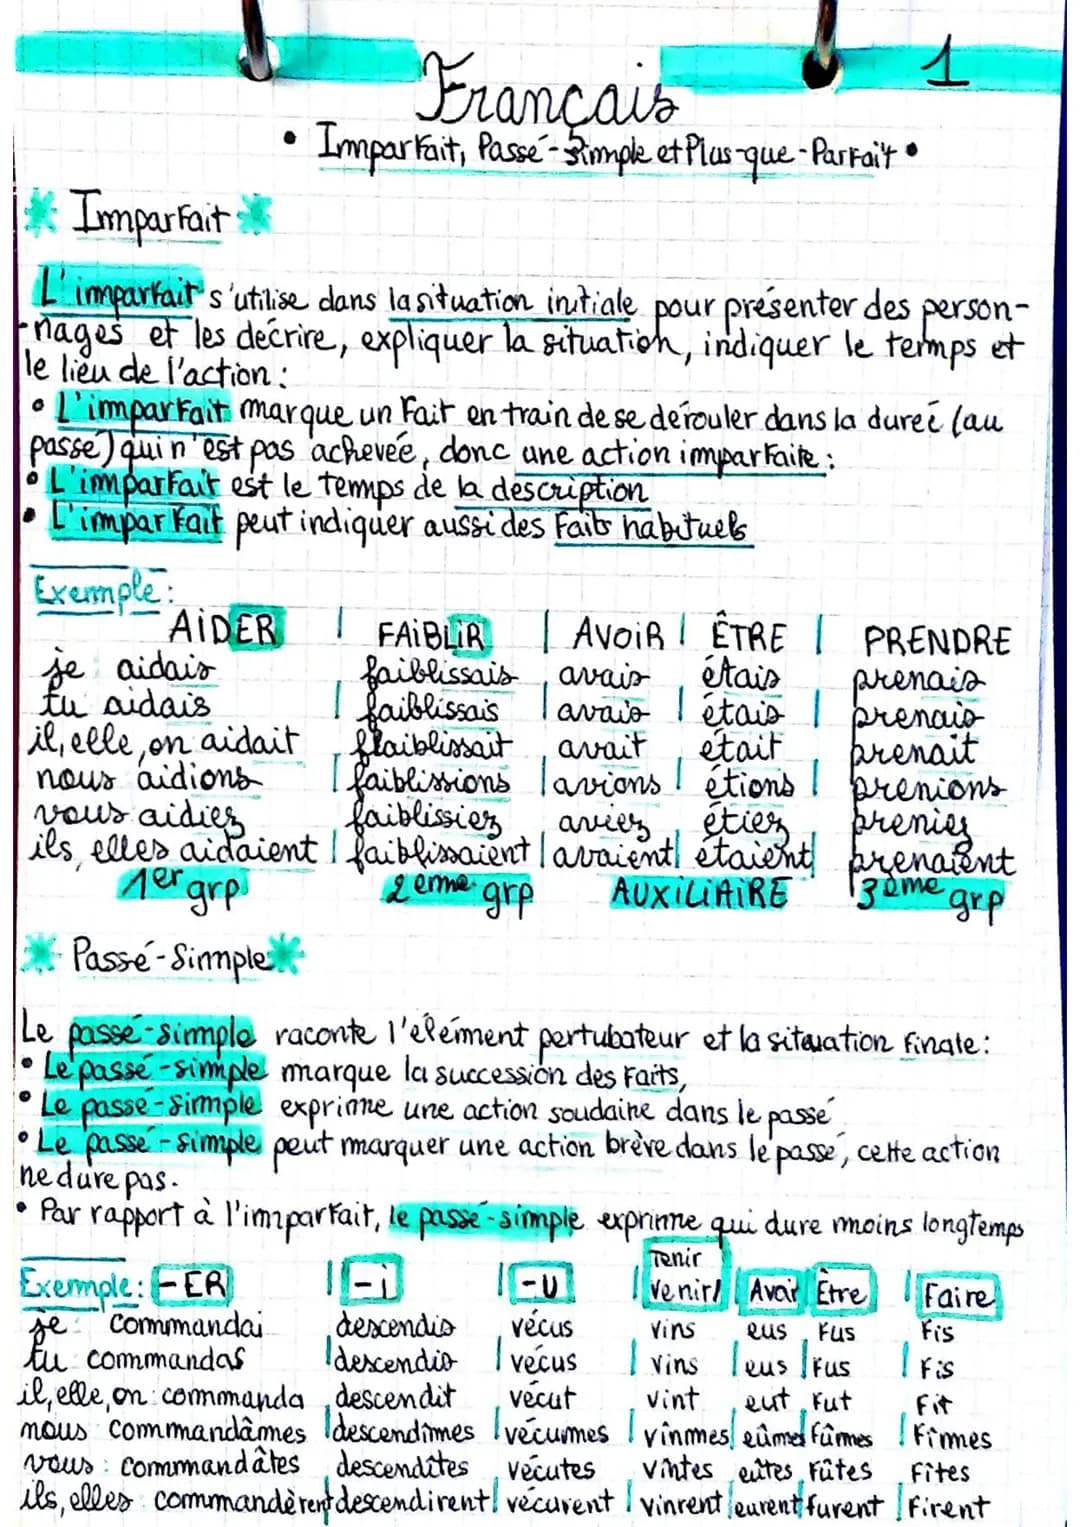 1
Français
• Imparfait, Passé-Simple et Plus-que-Parfait •
* Imparfait *
L'imparfait s'utilise dans la situation initiale pour présenter des person-
-nages et les décrire, expliquer la situation, indiquer le temps et
le lieu de l'action :
• L'imparfait marque un fait en train de se dérouler dans la dureé (au
passé) qui n'est pas achevée, donc une action imparfaite :
• L'imparfait est le temps de la description
• L'imparfait peut indiquer aussi des faits habituels
Exemple :
AIDER | FAIBLIR | AVOIR | ÊTRE | PRENDRE
je aidais faiblissais avais étais prenais
tu aidais | faiblissais | avais | étais | prenais
il, elle, on aidait flaiblissait avait était prenait
nous aidions | faiblissions | avions | étions | prenions
vous aidiez faiblissiez aviez étiez preniez
ils, elles aidaient | faiblissaient | avaient | étaient | prenaient
1er grp 2ème grp AUXILIAIRE 3ème grp
* Passé-Simple *
Le passé-simple raconte l'élément pertubateur et la situation finale :
• Le passé-simple marque la succession des faits,
• Le passé-simple exprime une action soudaine dans le passé
• Le passé-simple peut marquer une action brève dans le passé, cette action
ne dure pas.
• Par rapport à l'imparfait, le passé-simple exprime qui dure moins longtemps
Exemple : -ER | -i | -U | Tenir Venir | Avoir Être | Faire
je : commandai descendis vécus vins eus fus fis
tu commandas | descendis | vécus | vins | eus | fus | fis
il, elle, on : commanda descendit vécut vint eut fut fit
nous commandâmes | descendîmes | vécumes | vinmes | eûmes fûmes | fimes
vous : commandâtes descendîtes vécutes vintes eûtes fûtes fîtes
ils, elles : commandèrent descendirent | vécurent | vinrent | eurent furent | firent